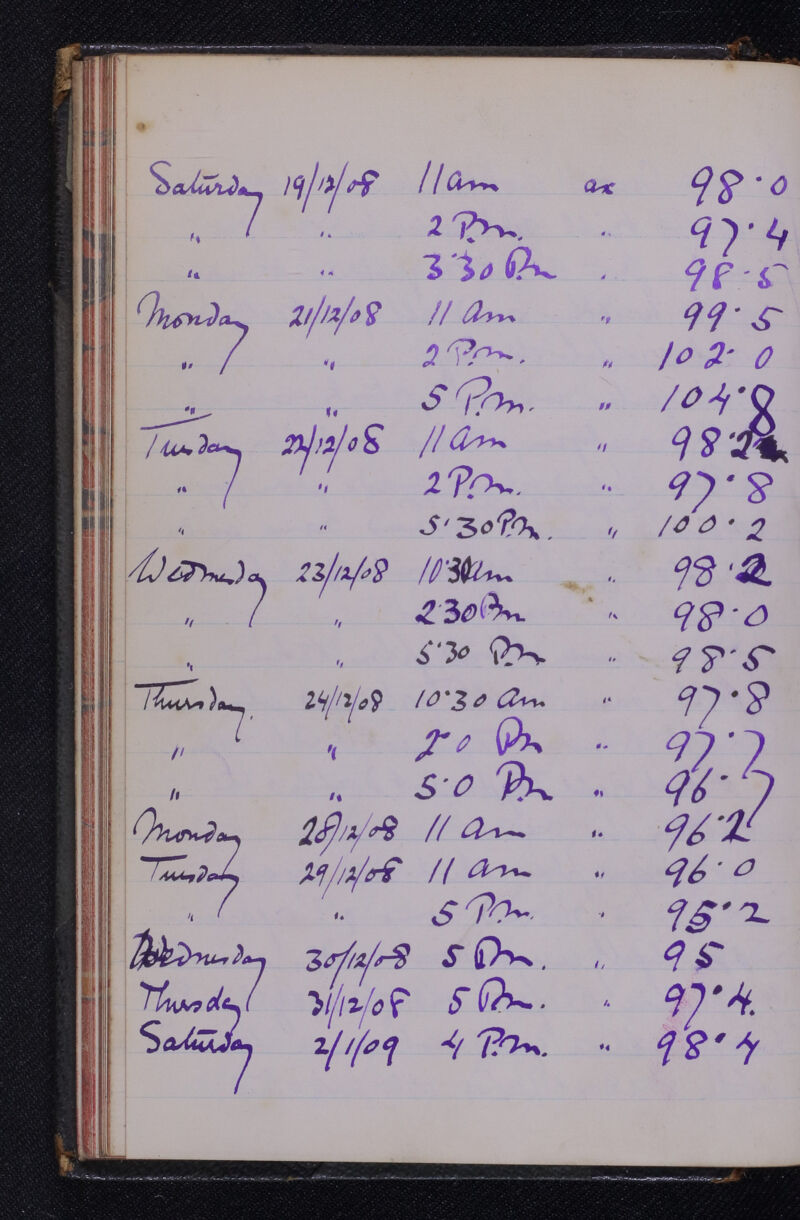 Saturday 19/12/08 11 am ax 98·0
" " 2 P.m. " 97·4
" " 3·30 Pm " 98·5
Monday 21/12/08 11 am " 99·5
" " 2 P.m. " 102·0
" " 5 P.m. " 104·8
Tuesday 22/12/08 11 am " 98·2
" " 2 P.m. " 97·8
" " 5·30 P.m. " 100·2
Wednesday 23/12/08 10·30 am " 98·2
" " 2·30 Pm " 98·0
" " 5·30 P.m " 98·5
Thursday. 24/12/08 10·30 am " 97·8
" " 2·0 Pm " 97·7
" " 5·0 Pm " 96·7
Monday 28/12/08 11 am " 96·2
Tuesday 29/12/08 11 am " 96·0
" " 5 P.m. " 95·2
Wednesday 30/12/08 5 Pm. " 95
Thursday 31/12/08 5 Pm. " 97·4.
Saturday 2/1/09 4 P.m. " 98·4